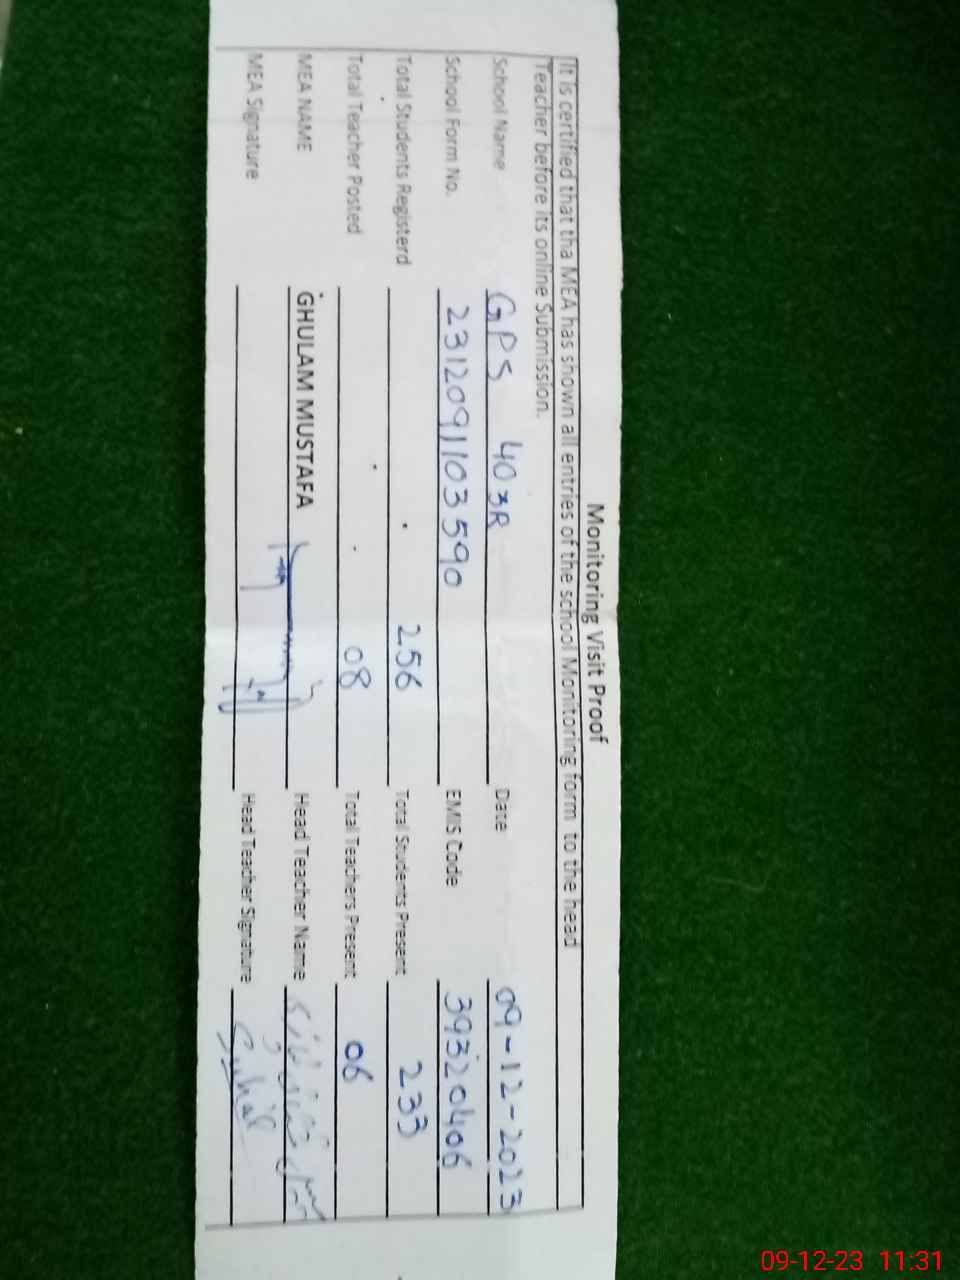 Monitoring Visit Proof
It is certified that tha MEA has shown all entries of the school Monitoring form to the head
Teacher before its online Submission.
School Name GPS 40 3R Date 09-12-2023
School Form No. 2312091103590 EMIS Code 39320406
Total Students Registerd 256 Total Students Present 233
Total Teacher Posted 08 Total Teachers Present 06
MEA NAME GHULAM MUSTAFA Head Teacher Name
MEA Signature Head Teacher Signature
09-12-23 11:31